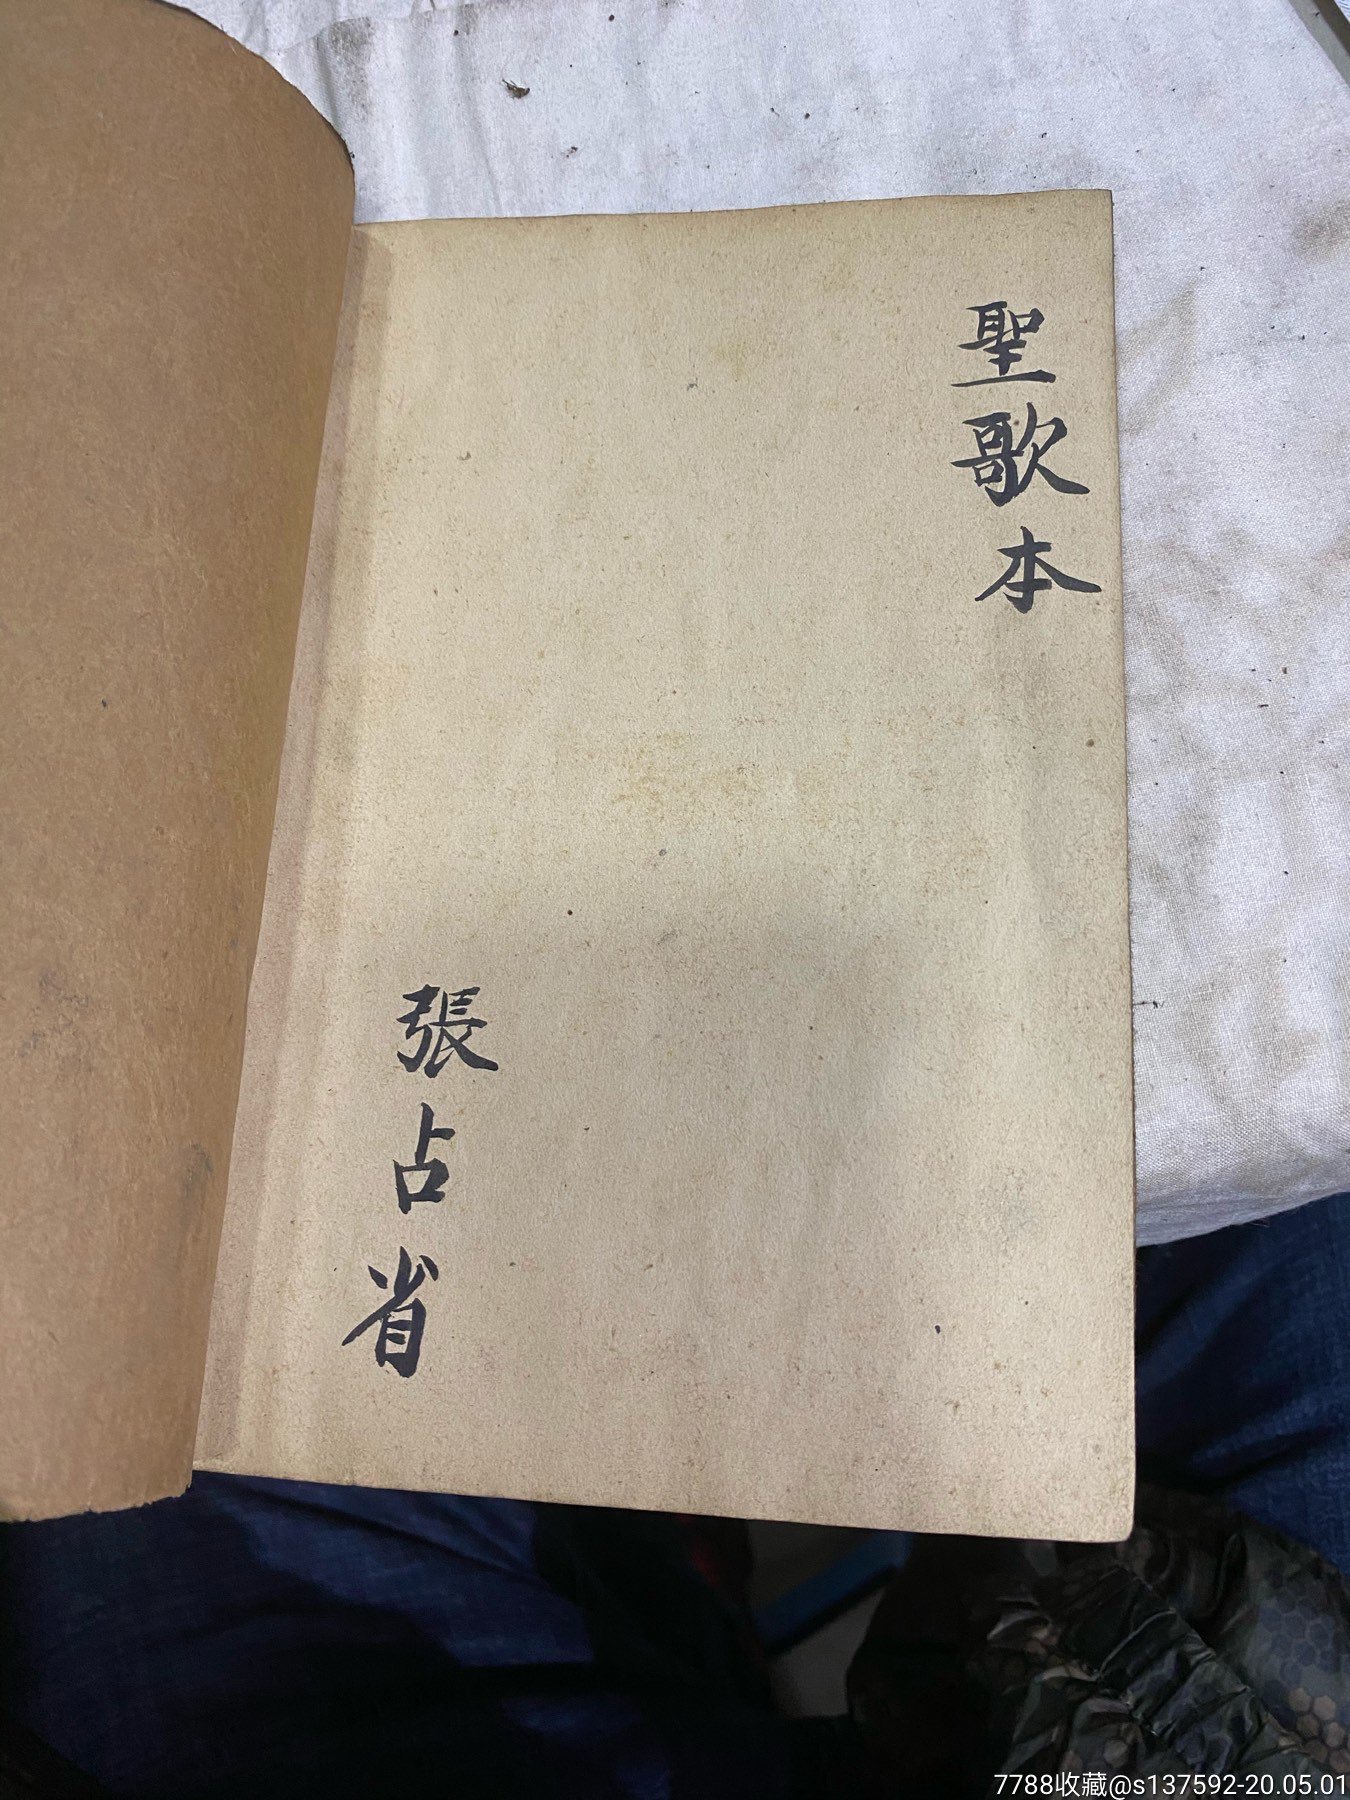 聖歌本
張占省
7788收藏@s137592-20.05.01